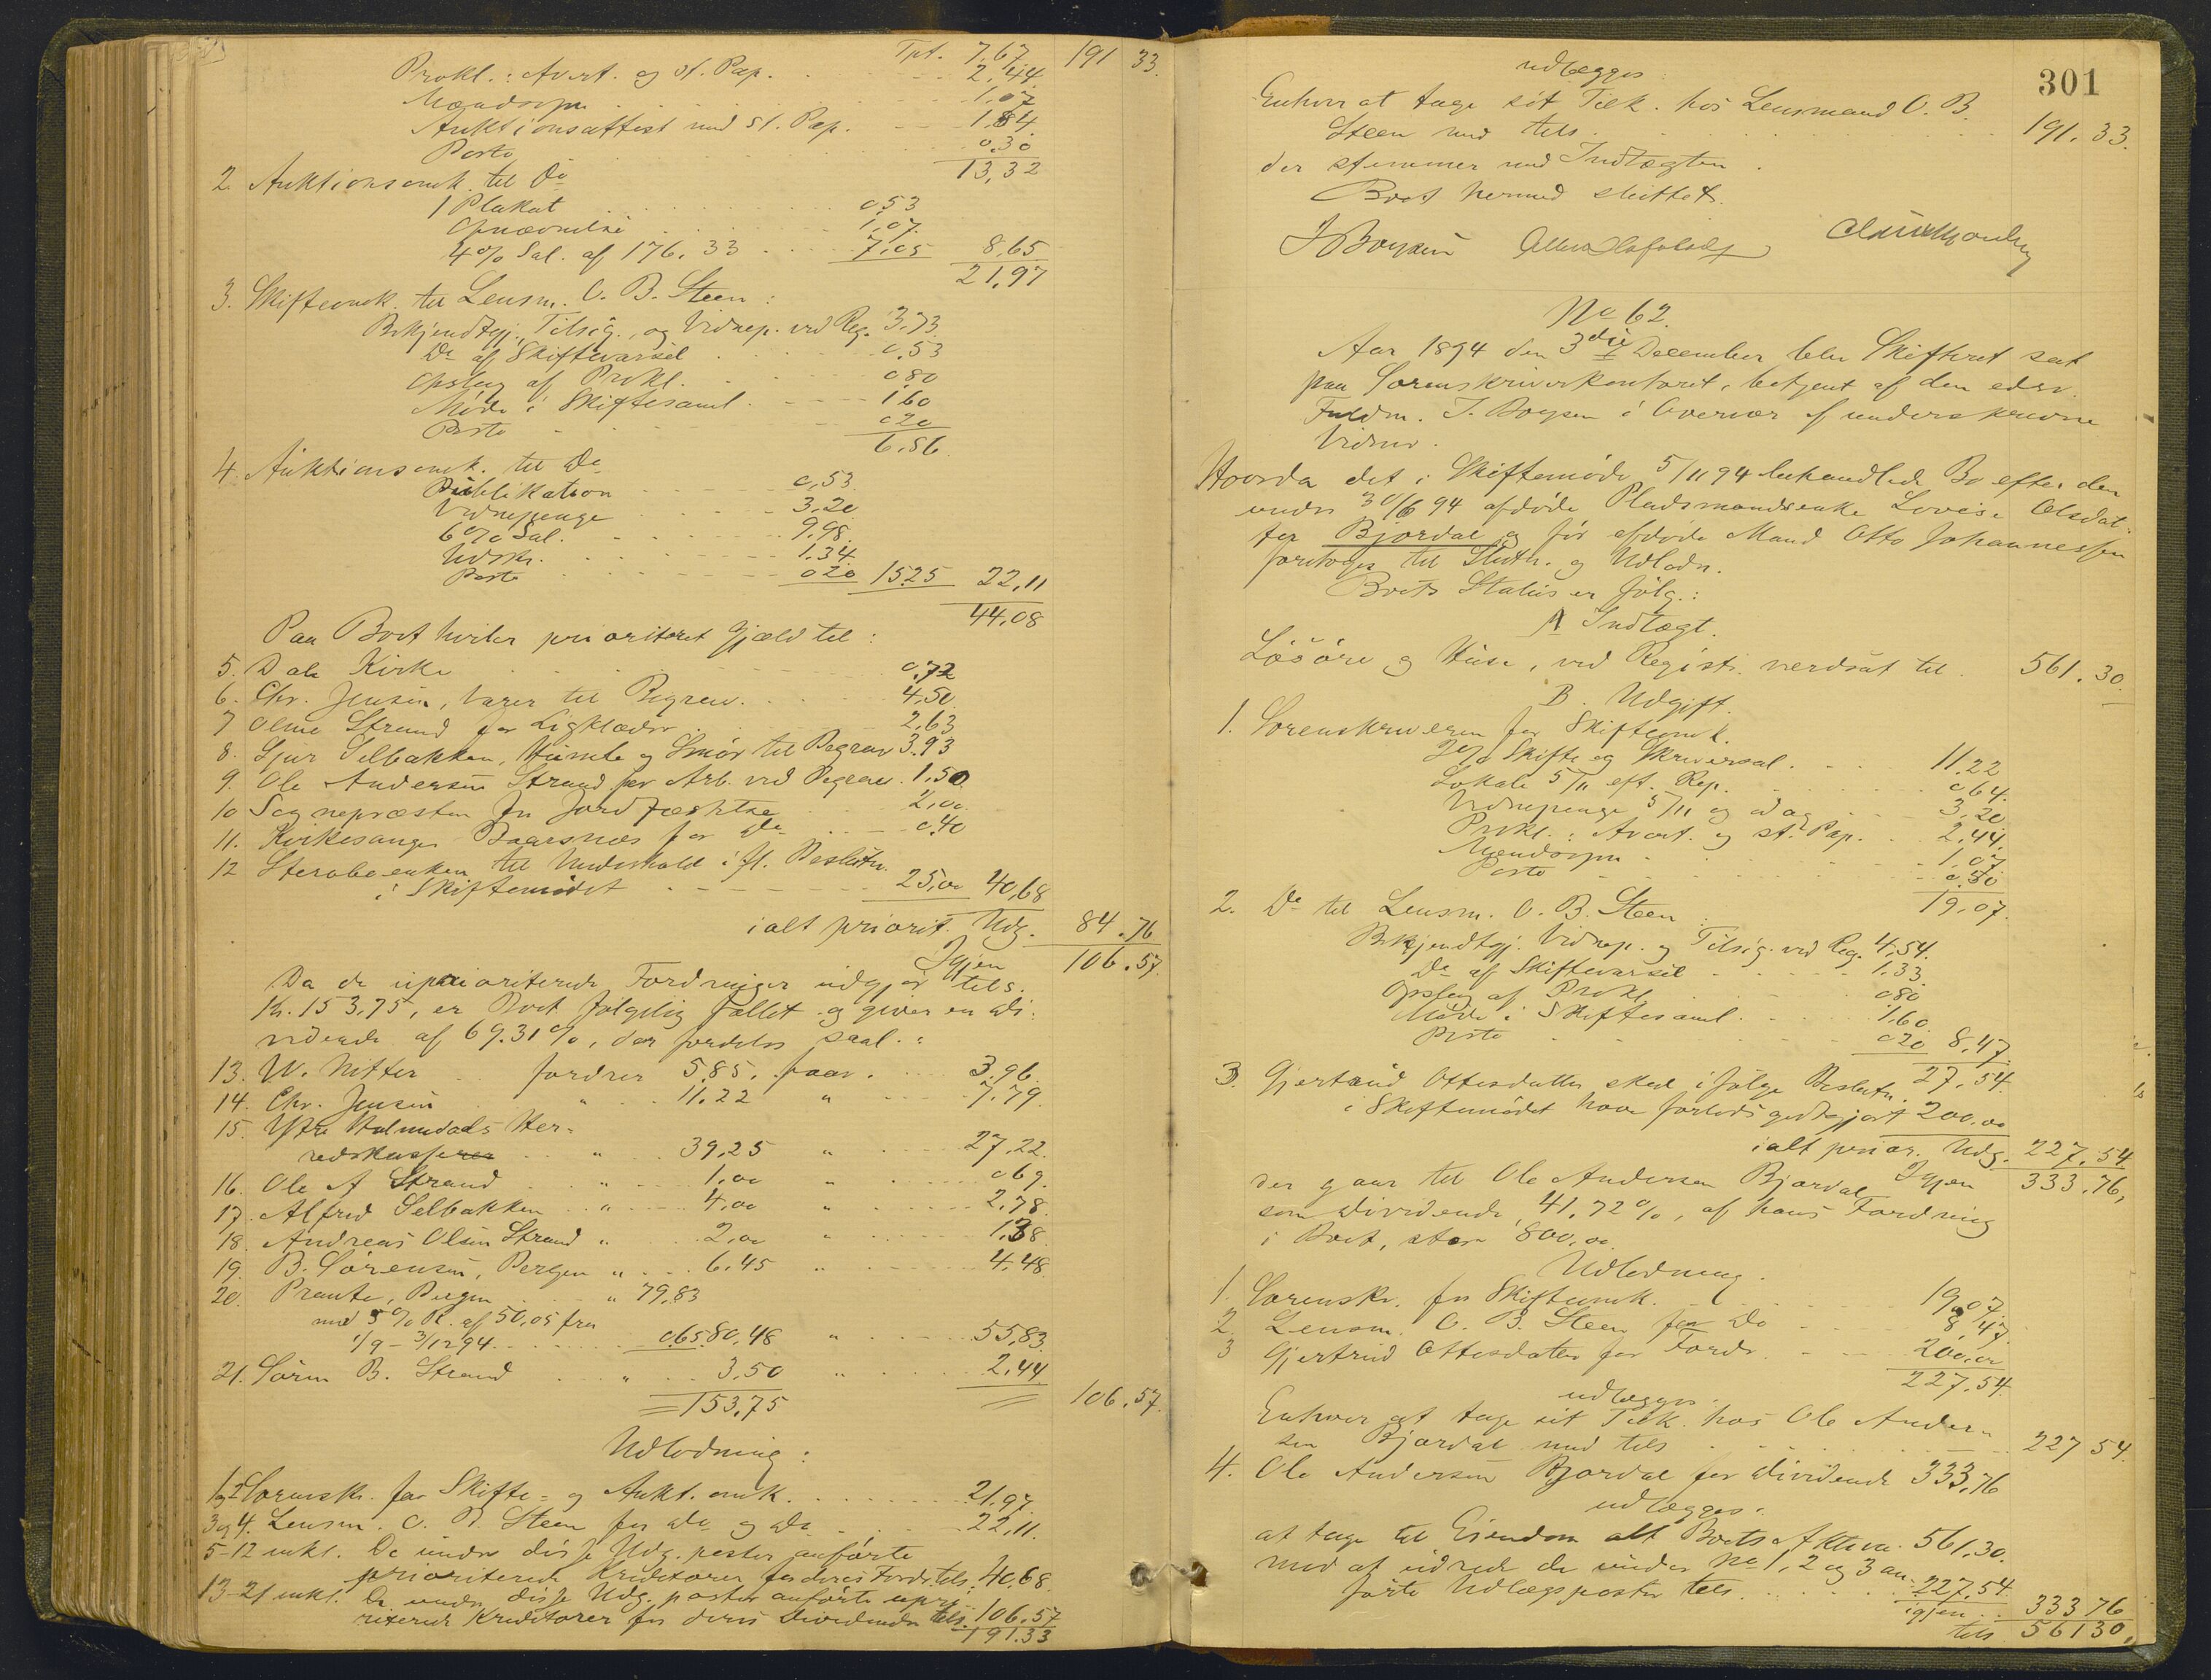 Tpt. 7,67 191 33.
Prokl.: Avert. og st. Pap. 2,44
Mandsopn. 1,07
Auktionsattest med st. Pap. 1,84
Porto 0,30
13,32
2. Auktionsomk. til Do
1 Plakat 0,53
Opnævnelse 1,07
4 % Sal. af 176,33 7,05 8,65
21,97
3. Skifteomk. til Lensm. O. B. Steen:
Bekjendtgj., Tilsig., og Vidnep. ved Reg. 3,73
Do af Skiftevarsel 0,53
Opslag af Prokl. 0,80
Møde i Skiftesaml. 1,60
Porto 0,20
6,86
4. Auktionsomk. til Do
Publikation 0,53
Vidnepenge 3,20
6 % Sal. 9,98
Udskr. 1,34
Porto 0,20 15,25 22,11
44,08
Paa Boet hviler prioriteret Gjæld til:
5. Dale Kirke 0,72
6. Chr. Jensen, Varer til Begrav. 4,50
7 Oline Strand for Ligklæder 2,63
8. Sjur Selbakken, Humle og Smør til Begrav 3,93
9. Ole Andersen Strand for Arb. ved Begrav. 1,50
10 Sognepræsten for Jordfæstelse 2,00
11. Kirkesanger Baarsnæs for Do 0,40
12 Sterboenken til Underhold ifl. Beslutn.
i Skiftemødet 25,00 40,68
ialt priorit. Udg. 84.76
Igjen 106.57
Da de upprioriterede Fordringer udgjør tels.
Kr. 153,75, er Boet følgelig fallet og giver en Di-
vidende af 69.31 %, der fordeles saal.:
13. W. Nitter fordrer 5,85, faar 3,96
14. Chr. Jensen " 11,22 " 7,79
15. Ytre Holmedals Her-
redskasse " 39,25 " 27,22
16. Ole A Strand " 1,00 " 0,69
17. Alfred Selbakken " 4,00 " 2,78
18. Andreas Olsen Strand " 2,00 " 1,38
19. B. Sørensen, Bergen " 6,45 " 4,48
20. Prante, Bergen " 79,83
med 5 % R. af 50,05 fra
1/9 – 3/12 94. 0,65 80,48 " 55,83
21. Søren B. Strand " 3,50 " 2,44
153,75 106,57
Udlodning:
1og2 Sorenskr. for Skifte- og Aukt. omk. 21,97
3og4. Lensm. O. B. Steen for Do og Do 22,11.
5-12 inkl. De under disse Udg. poster anførte
prioriterede Kreditorer for deres Fordr. tels. 40,68
13-21 inkl. De under disse Udg. poster anførte uprio-
riterede Kreditorer for deres Dividende tels. 106,57
191.33
301
udlægges:
Enhver at tage sit Tilk. hos Lensmand O. B.
Steen med tels. 191,33.
der stemmer med Indtægten.
Boet hermed sluttet.
J Boysen
No 62.
Aar 1894 den 3die December blev Skifteret sat
paa Sorenskriverkontoret, betjent af den edsv.
Fuldm. J. Boysen i Overvær af underskrevne
Vidner.
Hvorda det i Skiftemøde 5/11 94 behandlede Bo efter den
under 30/6 94 afdøde Pladsmandsenke Lovise Olsdat-
ter Bjordal og før afdøde Mand Otto Johannessen
foretoges til Slutn. og Udlodn.
Boets Status er følg.:
A Indtægt.
Løsøre og Huse, ved Registr. verdsat til 561.30
B. Udgift.
1. Sorenskriveren for Skifteomk.
2 % Skifte og Skriversal. 11,22
Lokale 5/11 eft. Rep. 0,64
Vidnepenge 5/11 og idag 3,20
Prokl.: Avert. og st. Pap. 2,44
Mandsopn. 1,07
Porto 0,50
19,07
2. Do til Lensm. O. B. Steen:
Bekjendtgj. Vidnep. og Tilsig. ved Reg. 4,54
Do af Skiftevarsel 1,33
Opslag af Prokl. 0,80
Møde i Skiftesaml. 1,60
Porto 0,20 8,47
27,54
3. Gjertrud Ottesdatter skal ifølge Beslutn.
i Skiftemødet have forlods godtgjort 200,00
ialt prior. Udg. 227,54
Igjen 333,76,
der gaar til Ole Andersen Bjordal
som Dividende, 41,72 %, af hans Fordring
i Boet, stor 800,00
Udlodning.
1. Sorenskr. for Skifteomk. 19,07
2. Lensm. O. B. Steen for Do 8,47
3 Gjertrud Ottesdatter for Fordr. 200,00
227,54
udlægges.
Enhver at tage sit Tilk. hos Ole Ander-
sen Bjordal med tels 227 54.
4. Ole Andersen Bjordal for Dividende 333,76
udlægges:
at tage til Eiendom alt Boets Aktiva 561,30.
mod at udrede de under No 1, 2 og 3 an-
førte Udlægsposter tels. 227,54
igjen 333 76
tels 561 30,